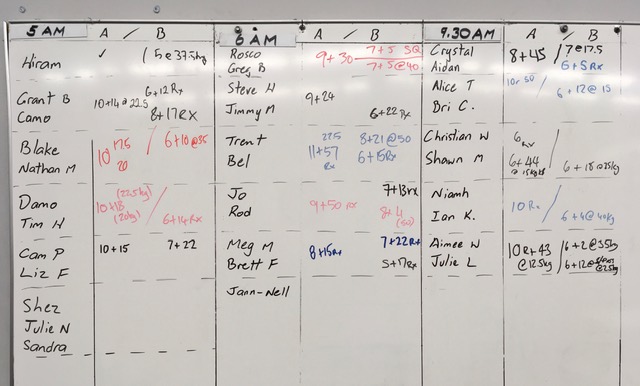 5 AM A / B
Hiram ✓ / 5@37.5kg
Grant B 10+14@22.5 6+12 Rx
Camo 8+17 RX
Blake 10 17.5 / 6+10@35
Nathan M 20
Damo 10+18 (22.5kg) /
Tim H (20kg) 6+14 Rx
Cam P 10+15 7+22
Liz F
Shez
Julie N
Sandra
6 AM A / B
Rosco 9+30 7+5 SQ
Greg B 7+5@40
Steve H 9+24
Jimmy M 6+22 Rx
Trent 22.5 8+21@50
Bel 11+57 Rx 6+15 Rx
Jo 7+13 rx
Rod 9+50 rx 8+4 (50)
Meg M 8+15 Rx 7+22 Rx
Brett F 5+17 Rx
Jann-Nell
9.30AM A / B
Crystal 8+45 / 7@17.5
Aidan 6+5 Rx
Nice T 10r 50 / 6+12@15
Bri C.
Christian W 6 RX
Shawn M 6+44 / 6+18@25kg
Niamh 10 Rx /
Ian K. 6+4@40kg
Aimee W 10 R+43 / 6+2@35kg
Julie L @12.5kg 6+12@ @25kg